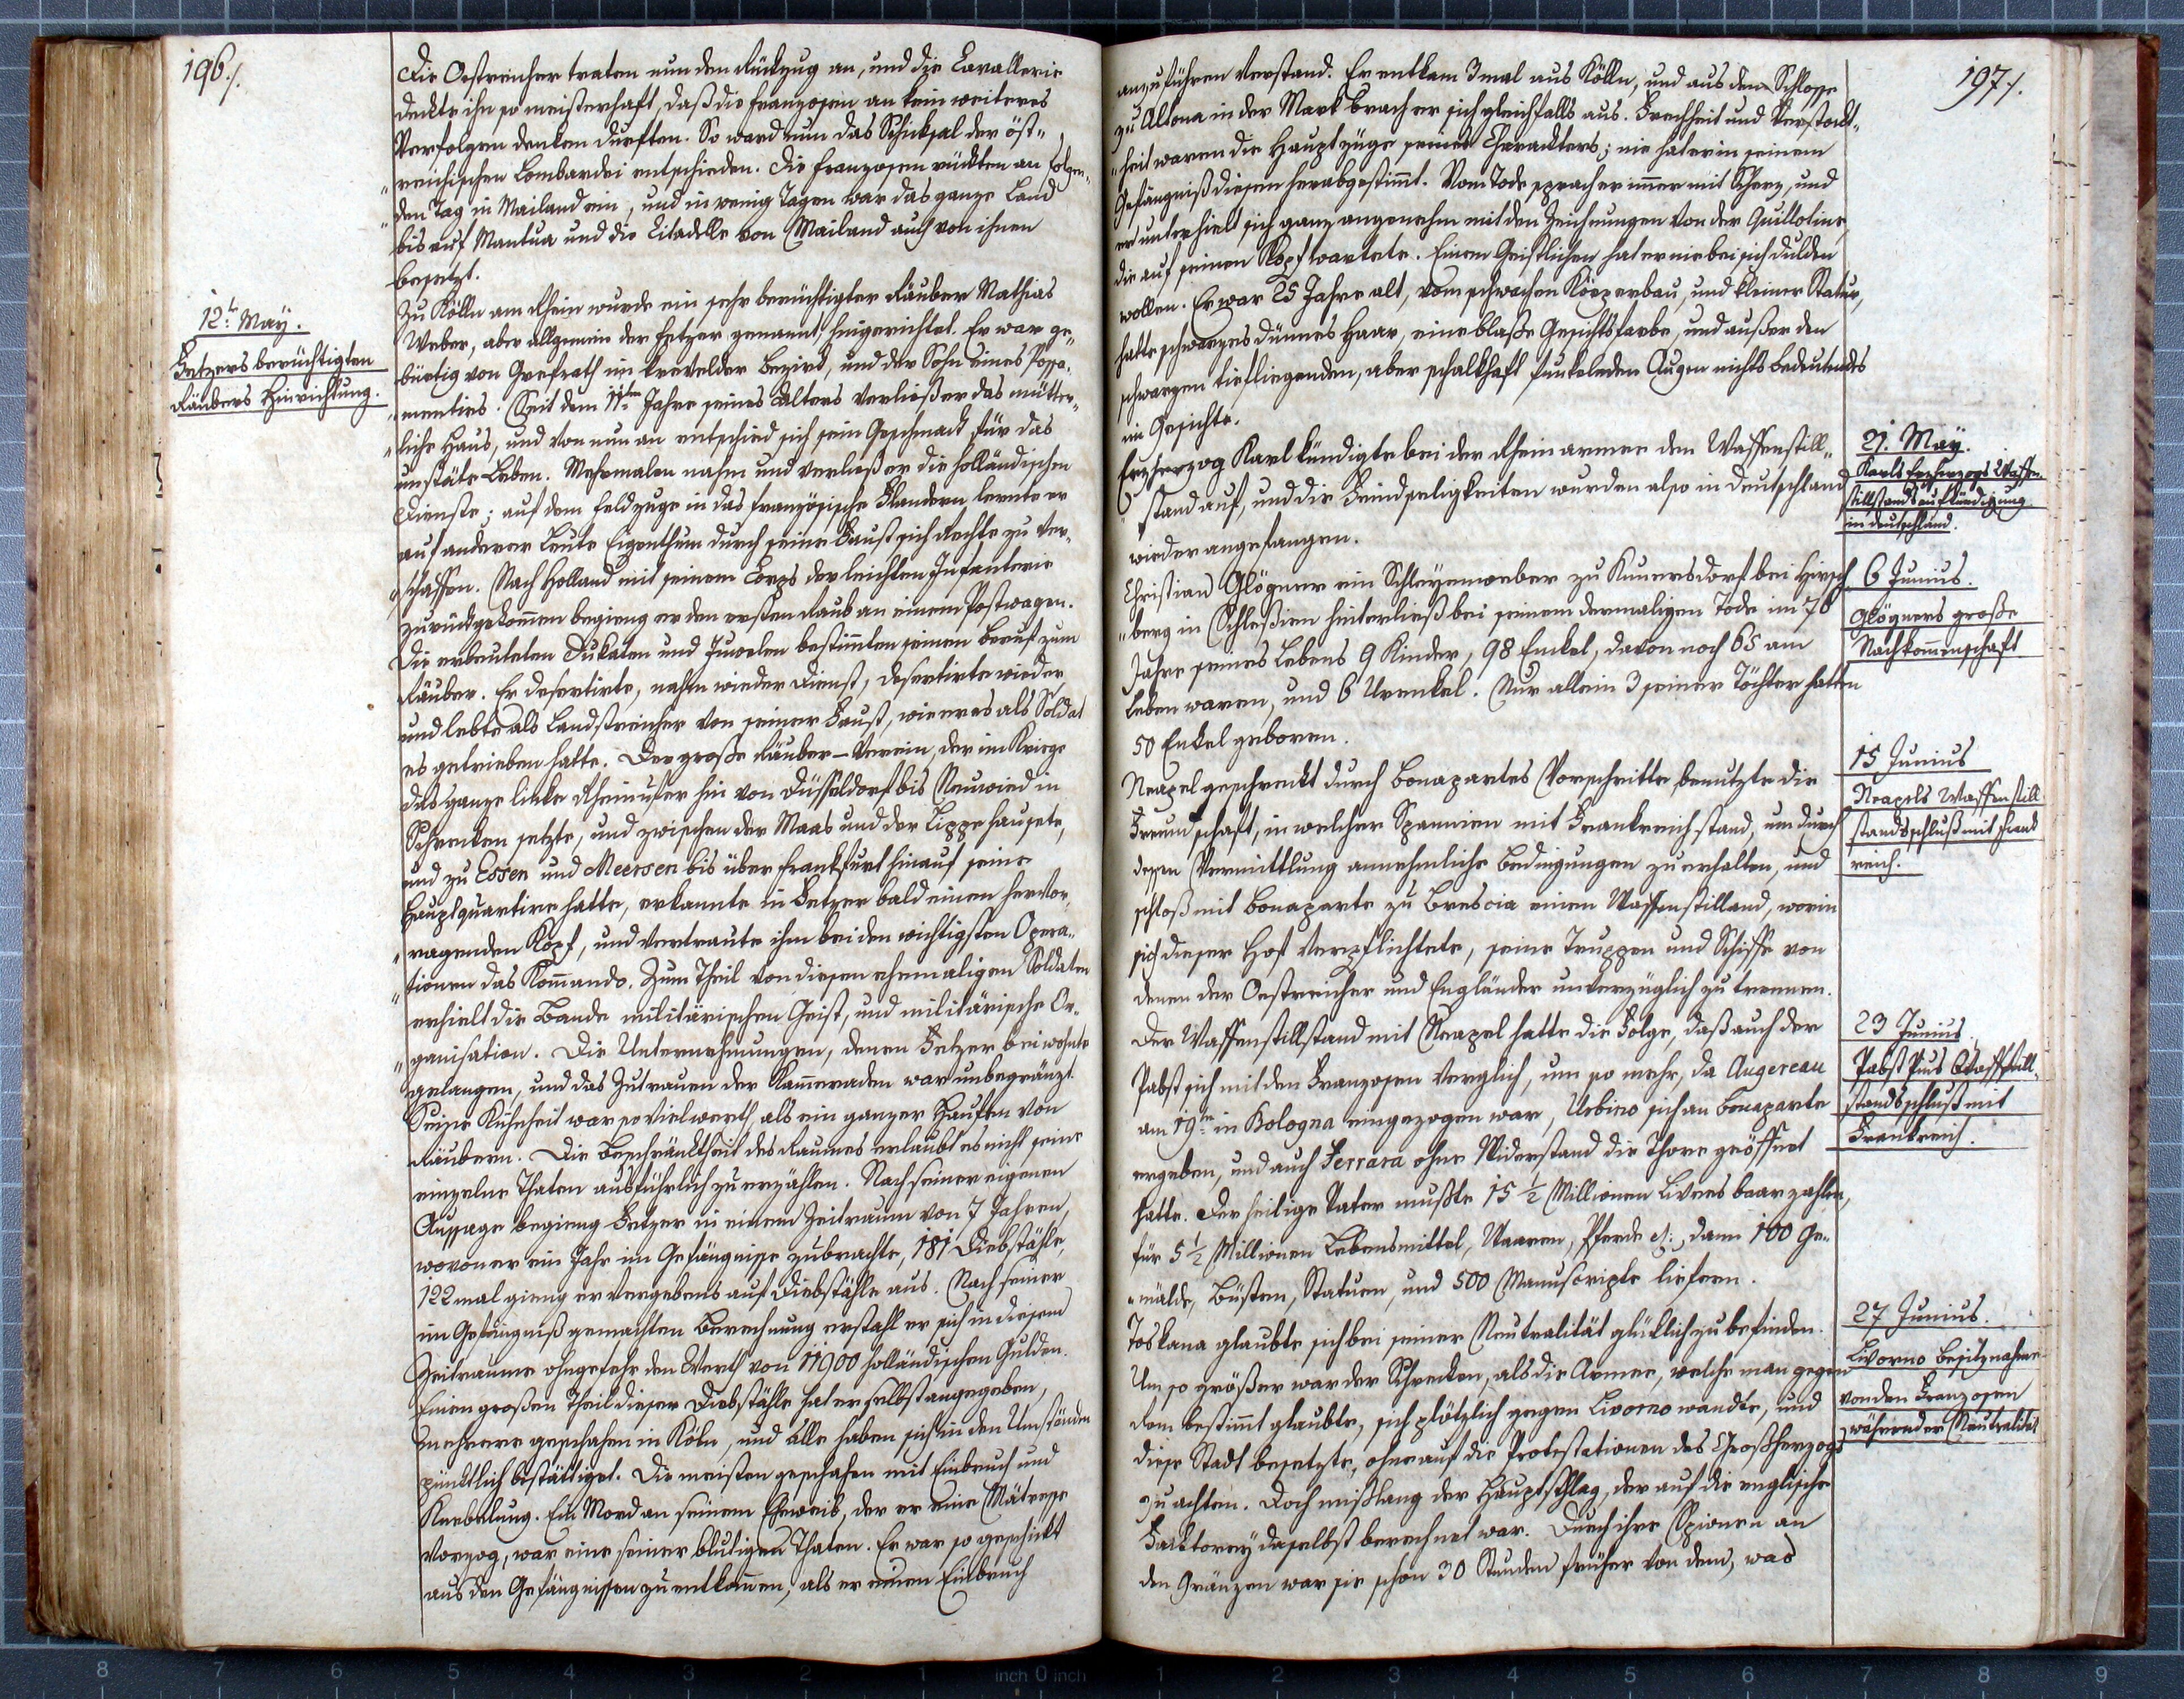 196./.
Die Oestreicher traten nun den Rückzug an, und die Cavallerie
deckte ihn so meisterhaft, daß die Franzosen an kein weiteres
Verfolgen denken durften. So ward nun das Schicksal der öst„
„reichischen Lombardei entschieden. Die Franzosen rückten an folgen„
„den Tag in Mailand ein, und in wenig Tagen war das ganze Land
bis auf Mantua und die Citadelle von Mailand auch von ihnen
besetzt.
12t May.
Fetzers berüchtigten
Räubers Hinrichtung.
Zu Kölln am Rhein wurde ein sehr berüchtigter Räuber Mathias
Weber, aber allgemein der Fetzer genannt, hingerichtet. Er war ge„
bürtig von Grefrath im krevelder Bezirk, und der Sohn eines Possa„
„mentirs. Seit dem 11ten Jahre seines Alters verließ er das mütter„
„liche Haus, und von nun an entschied sich sein Geschmack für das
unstäte Leben. Mehrmalen nahm und verließ er die holländischen
Dienste; auf dem Feldzuge in das französische Flandern lernte er
auf anderer Leute Eigenthum durch seine Faust sich Rechte zu ver„
„schaffen. Nach Holland mit seinem Corps der leichten Infanterie
zurückgekommen begieng er den ersten Raub an einem Postwagen.
Die erbeuteten Dukaten und Juwelen bestimmten seinen Beruf zum
Räuber. Er desertirte, nahm wieder Dienst, desertirte wieder,
und lebte als Landstreicher von seiner Faust, wie er es als Soldat
es getrieben hatte. Der große Räuber-Verein, der im Kriege
das ganze linke Rheinufer hin von Düsseldorf bis Neuwied in
Schrecken setzte, und zwischen der Maas und der Lippe hausete,
und zu Essen und Meersen bis über Frankfurt hinauf seine
Hauptquartire hatte, erkannte in Fetzer bald einen hervor„
„ragenden Kopf, und vertraute ihm bei den wichtigsten Opera„
„tionen das Kommando. Zum Theil von diesen ehemaligen Soldaten
erhielt die Bande militärischen Geist, und militärische Or„
„ganisation. Die Unternehmungen, denen Fetzer beiwohnte
gelangen, und das Zutrauen der Kammeraden war unbegränzt.
Seine Kühnheit war so viel werth, als ein ganzer Haufen von
Räubern. Die Beschränktheit des Raumes erlaubt es nicht seine
einzelne Thaten ausführlich zu erzählen. Nach seiner eigenen
Aussage begieng Fetzer in einem Zeitraum von 7 Jahren,
wovon er ein Jahr im Gefängnisse zubrachte, 181 Diebstähle,
122 mal gieng er vergebens auf Diebstähle aus. Nach seiner
im Gefängniß gemachten Berechnung erstahl er sich in diesem
Zeitraume ohngefehr den Werth von 11900 holländischen Gulden.
Einen großen Theil dieser Diebstähle hat er selbst angegeben,
mehrere geschahen in Köln, und alle haben sich in den Umständen
pünktlich bestättiget. Die meisten geschahen mit Einbruch und
Knebelung. Ein Mord an seinem Eheweib, der er eine Mätresse
vorzog, war eine seiner blutigen Thaten. Er war so geschickt
aus den Gefängnissen zu entkommen, als er einen Einbruch
197./.
anzuführen verstand. Er entkam 3mal aus Kölln, und aus dem Schlosse
zu Altona in der Mark brach er sich gleichfalls aus. Frechheit und Verstockt„
„heit waren die Hauptzüge seines Charackters; nie hat er in seinem
Gefängniß diesen herabgestimmt. Vom Tode sprach er immer mit Scherz, und
er unterhielt sich ganz angenehm mit den Zeichnungen von der Guillotine,
die auf seinen Kopf wartete. Einen Geistlichen hat er nie bei sich dulden
wollen. Er war 25 Jahre alt, vom schwachen Körperbau, und kleiner Statur,
hatte schwarzes dünnes Haar, eine blaße Gesichtsfarbe, und außer den
schwarzen tiefliegenden, aber schalkhaft funkelnden Augen nichts Bedeutendes
im Gesichte.
21. May.
Karls Erzherzogs Waffen
stillstandsaufkündigung
in Deutschland.
Erzherzog Karl kündigte bei der Rheinarmee den Waffenstill„
„stand auf, und die Feindseligkeiten wurden also in Deutschland
wieder angefangen.
6 Junius.
Glögners große
Nachkommenschaft
Christian Glögner ein Schleyerweber zu Kunersdorf bei Hirsch
„berg in Schlesien hinterließ bei seinem dermaligen Tode im 78
Jahre seines Lebens 9 Kinder, 98 Enkel, davon noch 65 am
Leben waren, und 6 Urenkel. Nur allein 3 seiner Töchter hatten
50 Enkel geboren.
15 Junius
Neapels Waffenstill
standsschluß mit Frank
reich.
Neapel geschreckt durch Bonapartes Vorschritte benutzte die
Freundschaft, in welcher Spannien mit Frankreich stand, um durch
dessen Vermittlung annehmliche Bedingungen zu erhalten, und
schloß mit Bonaparte zu Brescia einen Waffenstilland, worin
sich dieser Hof verpflichtete, seine Truppen und Schiffe von
denen der Oestreicher und Engländer unverzüglich zu trennen.
23 Junius
Pabst Pius Waffstill„
standsschluß mit
Frankreich.
Der Waffenstillstand mit Neapel hatte die Folge, daß auch der
Pabst sich mit den Franzosen verglich, um so mehr, da Augereau
am 19ten in Bologna eingezogen war, Urbino sich an Bonaparte
ergeben, und auch Ferrara ohne Widerstand die Thore geöffnet
hatte. Der heilige Vater mußte 15 1/2 Millionen Livres baar zahlen,
für 5 1/2 Millionen Lebensmittel, Waaren, Pferde etc., dann 100 Ge„
„mälde, Büsten, Statuen, und 500 Manuscripte liefern.
27 Junius.
Livorno Besitznahme
von den Franzosen
während der Neutralität
Toskana glaubte sich bei seiner Neutralität glücklich zu befinden.
Um so größer war der Schrecken, als die Armee, welche man gegen
dem bestimmt glaubte, sich plötzlich gegen Livorno wandte, und
diese Stadt besetzte, ohne auf die Protestationen des Großherzogs
zu achten. Doch mißlang der Hauptschlag, der auf die englische
Facktorey daselbst berechnet war. Durch ihre Spionen an
den Gränzen war sie schon 30 Stunden früher von dem, was
8 7 6 5 4 3 2 1 inch 0 inch 1 2 3 4 5 6 7 8 9